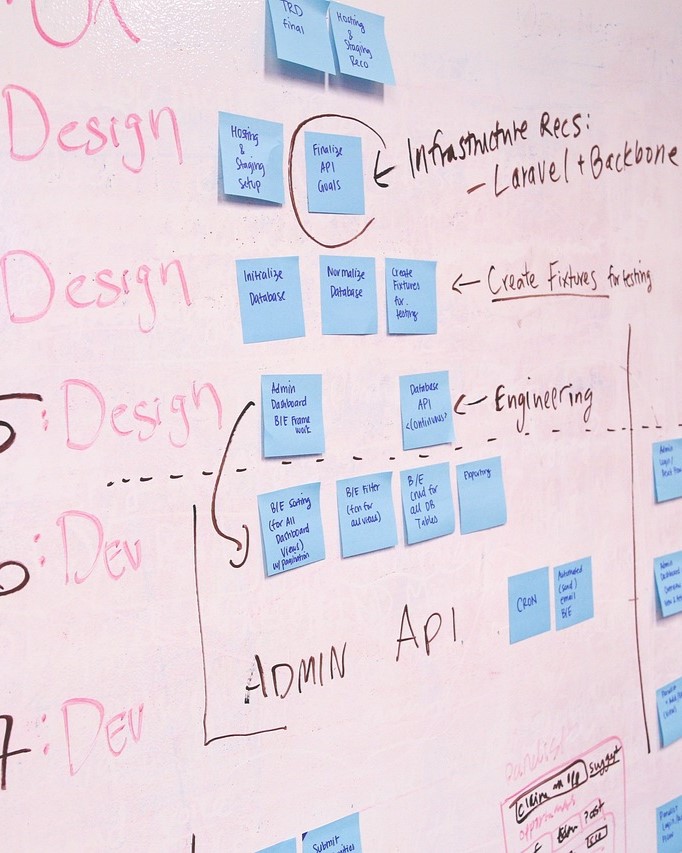 TRD
final
Hosting
&
Staging
Reco
Design
Hosting
&
Staging
Setup
Finalize
API
Goals
Infrastructure Recs:
- Laravel + Backbone
Design
Initialize
Database
Normalize
Database
Create
Fixtures
for
testing
Create Fixtures for testing
5: Design
Admin
Dashboard
B/E Frame
work
Database
API
<continuous>
Engineering
6: Dev
B/E Sorting
(for All
Dashboard
Views)
w/pagination
B/E Filter
(fcn for
all views)
B/E
CRUD for
all DB
Tables
Reporting
Admin
CRON
Automated
(send)
email
B/E
Admin
Dashboard
ADMIN API
7: Dev
claim
suggest
? cost
Submit